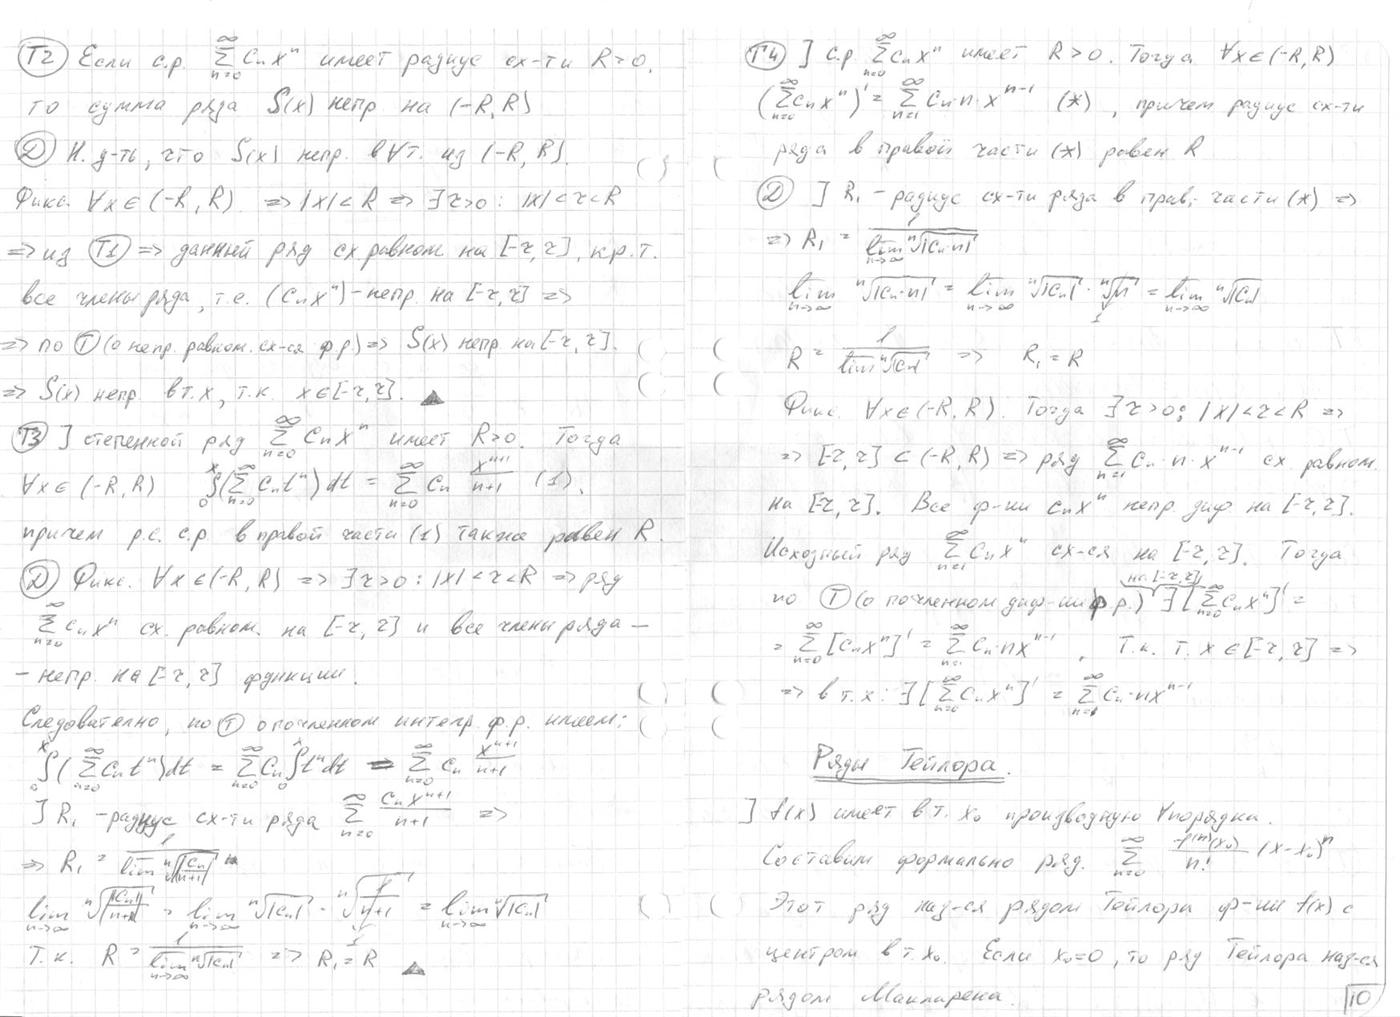 (Т2) Если с.р. ∑_{n=0}^{∞} CₙXⁿ имеет радиус сх-ти R>0,
то сумма ряда S(x) непр на (-R,R)
(Д) Н. д-ть, что S(x) непр. в ∀т. из (-R, R).
Фикс. ∀x∈(-R,R) ⇒ |x|<R ⇒ ∃r>0: |x|<r<R
⇒ из (Т1) ⇒ данный ряд сх равном на [-r,r], кр.т.
все члены ряда, т.е. (cₙxⁿ) – непр. на [-r,r] ⇒
⇒ по (Т) (о непр. равном. сх-ся ф.р.) ⇒ S(x) непр на [-r,r].
⇒ S(x) непр в т. x, т.к. x∈[-r,r]. ▲
(Т3) ] степенной ряд ∑_{n=0}^{∞} CₙXⁿ имеет R>0. Тогда
∀x∈(-R,R) ∫₀ˣ(∑_{n=0}^{∞} Cₙtⁿ)dt = ∑_{n=0}^{∞} Cₙ xⁿ⁺¹/(n+1) (1),
причем р.с. с.р. в правой части (1) также равен R.
(Д) Фикс. ∀x∈(-R,R) ⇒ ∃r>0: |x|<r<R ⇒ ряд
∑_{n=0}^{∞} cₙxⁿ сх. равном. на [-r,r] и все члены ряда –
– непр. на [-r,r] функции.
Следовательно, по (Т) о почленном интегр. ф.р. имеем:
∫₀ˣ(∑_{n=0}^{∞} Cₙtⁿ)dt = ∑_{n=0}^{∞} Cₙ ∫₀ˣ tⁿdt = ∑_{n=0}^{∞} Cₙ xⁿ⁺¹/(n+1)
] R₁ – радиус сх-ти ряда ∑_{n=0}^{∞} CₙXⁿ⁺¹/(n+1) ⇒
⇒ R₁ = 1/(lim ⁿ√(|Cₙ|/(n+1)))
lim_{n→∞} ⁿ√(|Cₙ|/(n+1)) = lim_{n→∞} ⁿ√|Cₙ| · ⁿ√(1/(n+1)) = lim_{n→∞} ⁿ√|Cₙ|
Т.к. R = 1/(lim_{n→∞} ⁿ√|Cₙ|) ⇒ R₁ = R ▲
(Т4) ] с.р. ∑_{n=0}^{∞} CₙXⁿ имеет R>0. Тогда ∀x∈(-R,R)
(∑_{n=0}^{∞} CₙXⁿ)' = ∑_{n=1}^{∞} Cₙ·n·Xⁿ⁻¹ (*), причем радиус сх-ти
ряда в правой части (*) равен R
(Д) ] R₁ – радиус сх-ти ряда в прав. части (*) ⇒
⇒ R₁ = 1/(lim_{n→∞} ⁿ√|Cₙ·n|)
lim_{n→∞} ⁿ√|Cₙ·n| = lim_{n→∞} ⁿ√|Cₙ| · ⁿ√n = lim_{n→∞} ⁿ√|Cₙ|
1
R = 1/(lim ⁿ√|Cₙ|) ⇒ R₁ = R
Фикс. ∀x∈(-R,R). Тогда ∃r>0: |x|<r<R ⇒
⇒ [-r,r] ⊂ (-R,R) ⇒ ряд ∑_{n=1}^{∞} Cₙ·n·xⁿ⁻¹ сх. равном.
на [-r,r]. Все ф-ии cₙxⁿ непр. диф на [-r,r].
Исходный ряд ∑_{n=1}^{∞} CₙXⁿ сх-ся на [-r,r]. Тогда
на [-r,r]
по (Т) (о почленном диф-ии ф.р.) ∃[∑_{n=0}^{∞} CₙXⁿ]' =
= ∑_{n=0}^{∞} [CₙXⁿ]' = ∑_{n=1}^{∞} Cₙ·nxⁿ⁻¹, Т.к. т. x∈[-r,r] ⇒
⇒ в т.x: ∃[∑_{n=0}^{∞} CₙXⁿ]' = ∑_{n=1}^{∞} Cₙ·nxⁿ⁻¹
Ряды Тейлора.
] f(x) имеет в т. x₀ производную ∀порядка.
Составим формально ряд. ∑_{n=0}^{∞} f⁽ⁿ⁾(x₀)/n! (x-x₀)ⁿ
Этот ряд наз-ся рядом Тейлора ф-ии f(x) с
центром в т.x₀. Если x₀=0, то ряд Тейлора наз-ся
рядом Макларена.
10